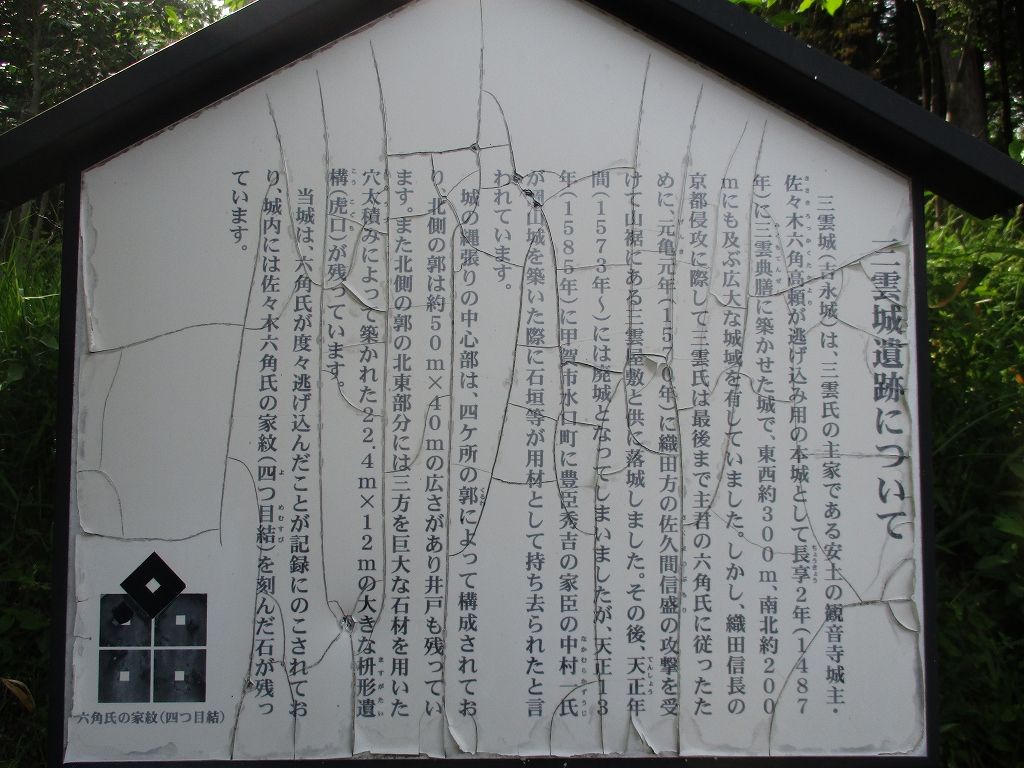 三雲城遺跡について
三雲城(吉永城)は、三雲氏の主家である安土の観音寺城主・
佐々木六角高頼が逃げ込み用の本城として長享2年(1487
年)に三雲典膳に築かせた城で、東西約300m、南北約200
mにも及ぶ広大な城域を有していました。しかし、織田信長の
京都侵攻に際して三雲氏は最後まで主君の六角氏に従ったた
めに、元亀元年(1570年)に織田方の佐久間信盛の攻撃を受
けて山裾にある三雲屋敷と供に落城しました。その後、天正年
間(1573年~)には廃城となってしまいましたが、天正13
年(1585年)に甲賀市水口町に豊臣秀吉の家臣の中村一氏
が岡山城を築いた際に石垣等が用材として持ち去られたと言
われています。
城の縄張りの中心部は、四ケ所の郭によって構成されてお
り、北側の郭は約50m×40mの広さがあり井戸も残ってい
ます。また北側の郭の北東部分には三方を巨大な石材を用いた
穴太積みによって築かれた22.4m×12mの大きな枡形遺
構(虎口)が残っています。
当城は、六角氏が度々逃げ込んだことが記録にのこされてお
り、城内には佐々木六角氏の家紋(四つ目結)を刻んだ石が残っ
ています。
六角氏の家紋(四つ目結)